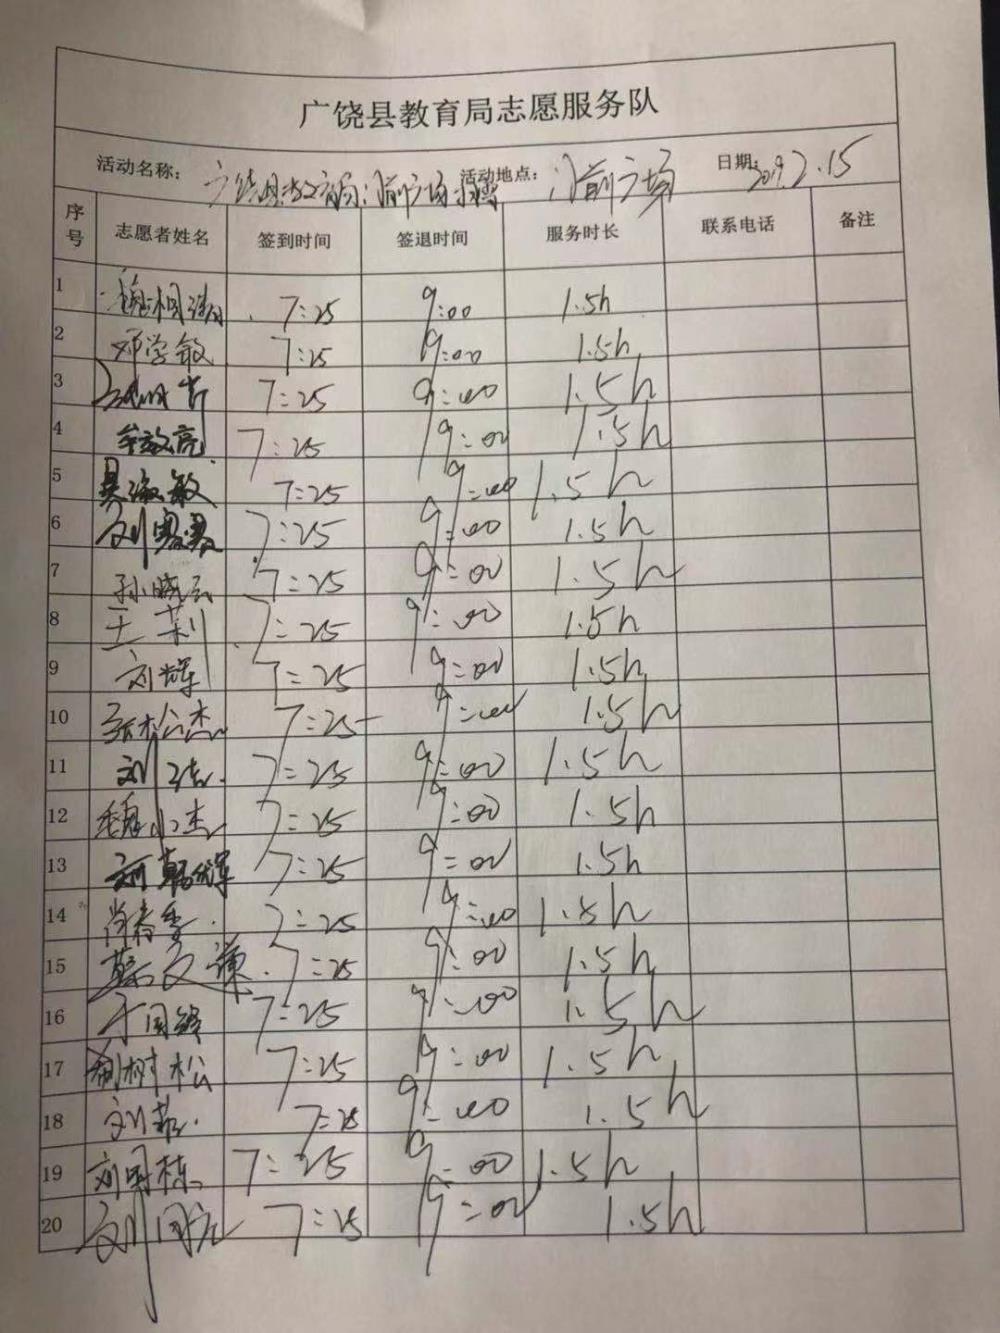 广饶县教育局志愿服务队
活动名称: 广饶县教育局门前广场扫雪 活动地点: 门前广场 日期: 2019.2.15
序号 志愿者姓名 签到时间 签退时间 服务时长 联系电话 备注
1 7:25 9:00 1.5h
2 邓学敏 7:25 9:00 1.5h
3 7:25 9:00 1.5h
4 牟效亮 7:25 9:00 1.5h
5 吴淑敏 7:25 9:00 1.5h
6 刘男男 7:25 9:00 1.5h
7 孙晓云 7:25 9:00 1.5h
8 王莉 7:25 9:00 1.5h
9 刘辉 7:25 9:00 1.5h
10 张松杰 7:25 9:00 1.5h
11 刘 7:25 9:00 1.5h
12 魏小杰 7:25 9:00 1.5h
13 7:25 9:00 1.5h
14 尚春季 7:25 9:00 1.5h
15 7:25 9:00 1.5h
16 7:25 9:00 1.5h
17 树松 7:25 9:00 1.5h
18 刘菲 7:25 9:00 1.5h
19 刘国栋 7:25 9:00 1.5h
20 刘 7:25 9:00 1.5h